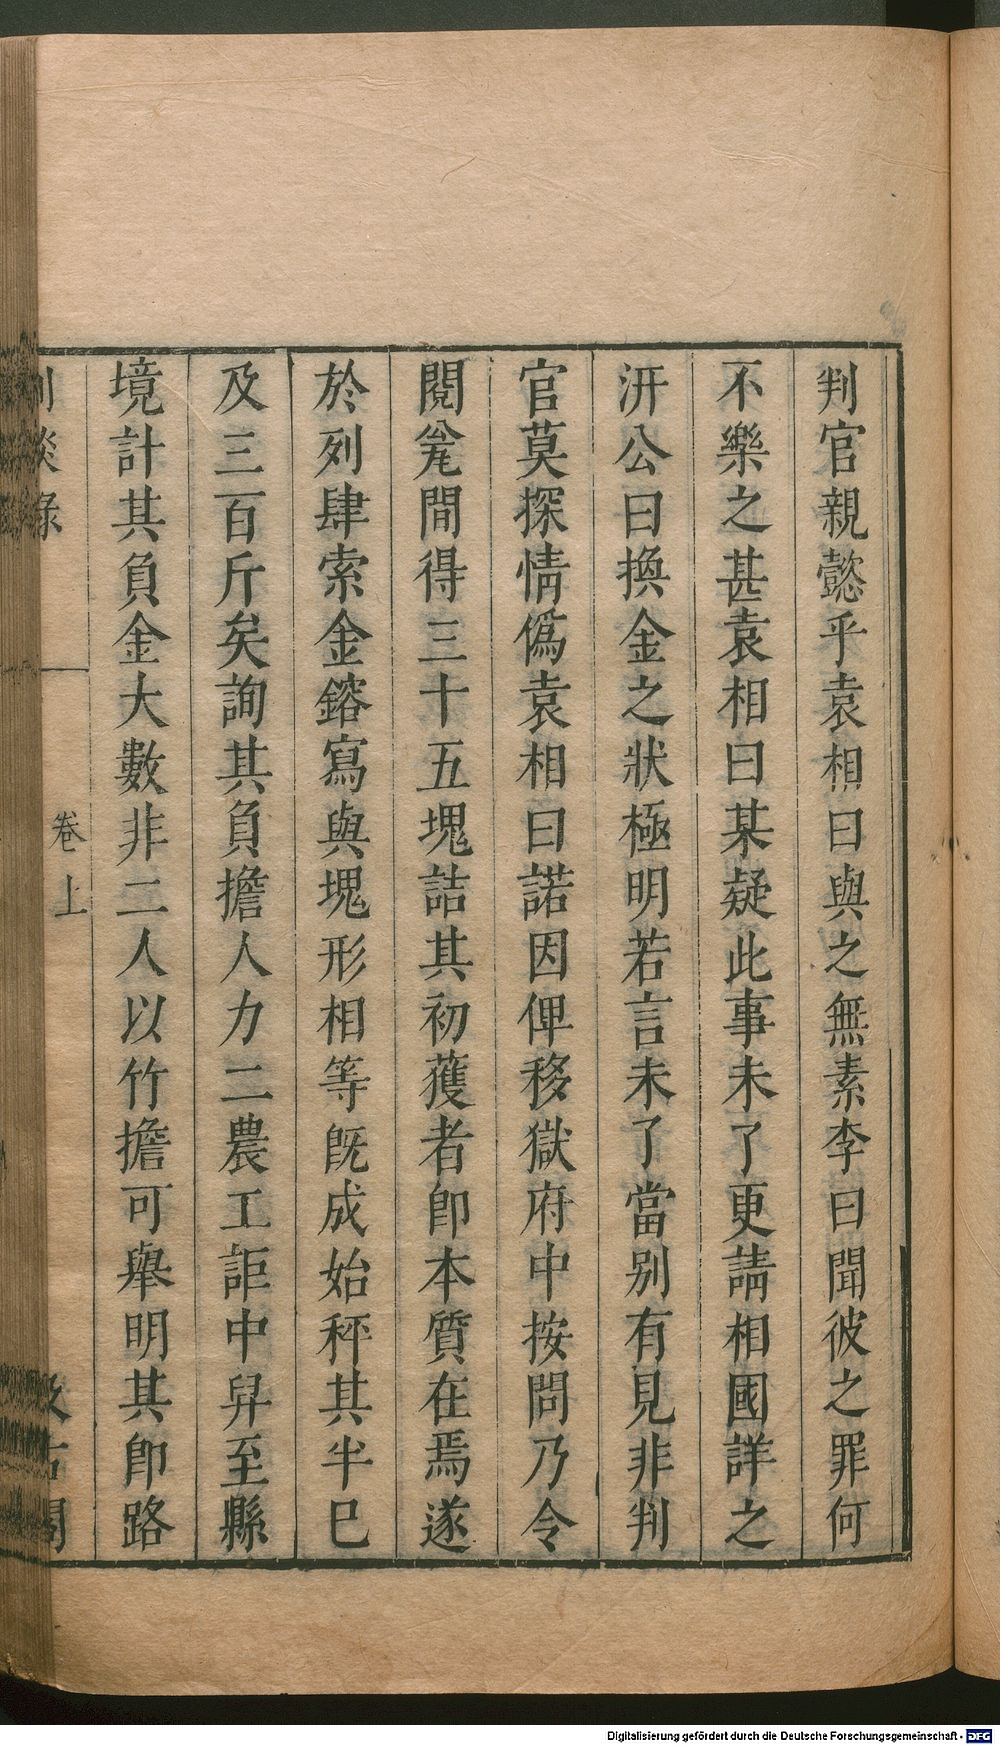 判官親懿乎袁相曰與之無素李曰聞彼之罪何
不樂之甚袁相曰某疑此事未了更請相國詳之
汧公曰換金之狀極明若言未了當別有見非判
官莫探情偽袁相曰諾因俾移獄府中按問乃令
閱瓮間得三十五塊詰其初獲者卽本質在焉遂
於列肆索金鎔寫與塊形相等旣成始秤其半巳
及三百斤矣詢其負擔人力二農工詎中舁至縣
境計其負金大數非二人以竹擔可舉明其卽路
劇談錄
卷上
汲古閣
Digitalisierung gefördert durch die Deutsche Forschungsgemeinschaft - DFG